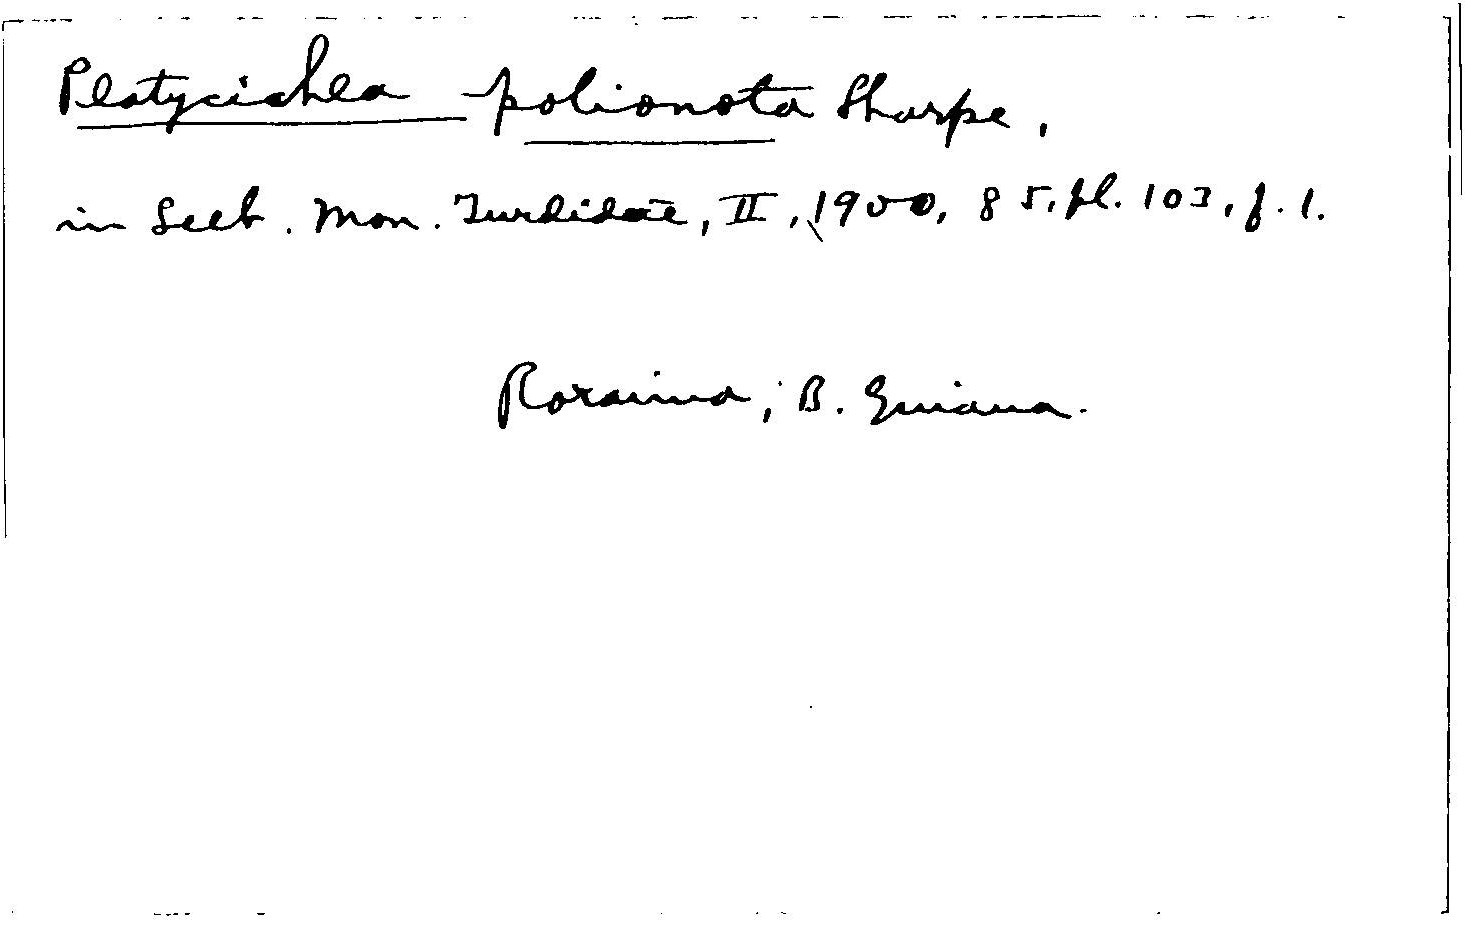 Platycichla polionota Sharpe,
in Seeb. Mon. Turdidae, II, 1900, 85, pl. 103, f. 1.
Roraima, B. Guiana.